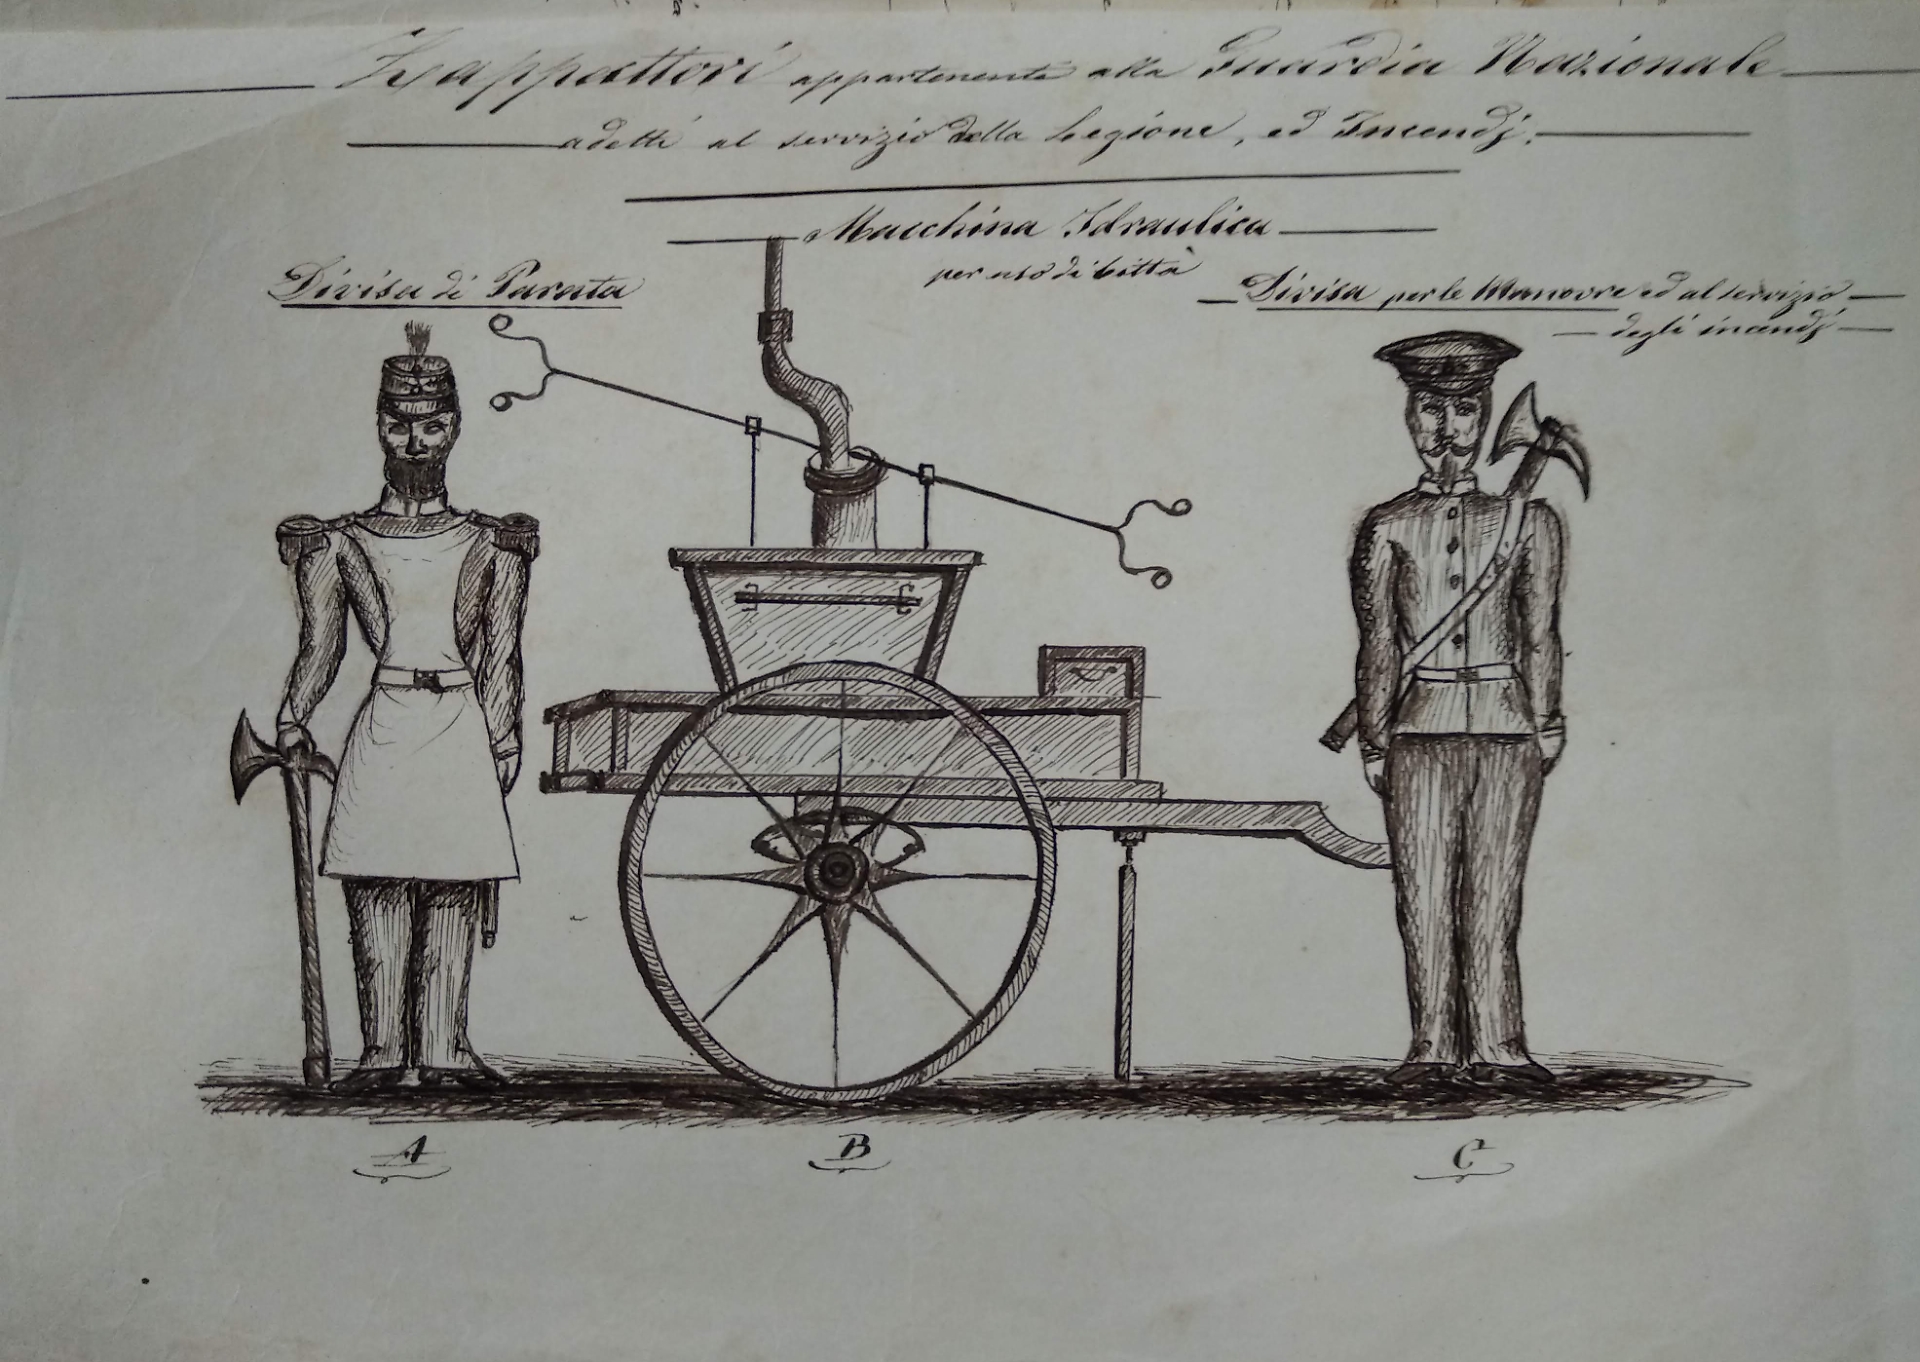 Zappattori appartenenti alla Guardia Nazionale
adetti al servizio della Legione, ed Incendj.
Macchina Idraulica
per uso di Città
Divisa di Parata
Divisa per le Manovre ed al servizio
degli incendj
A
B
C